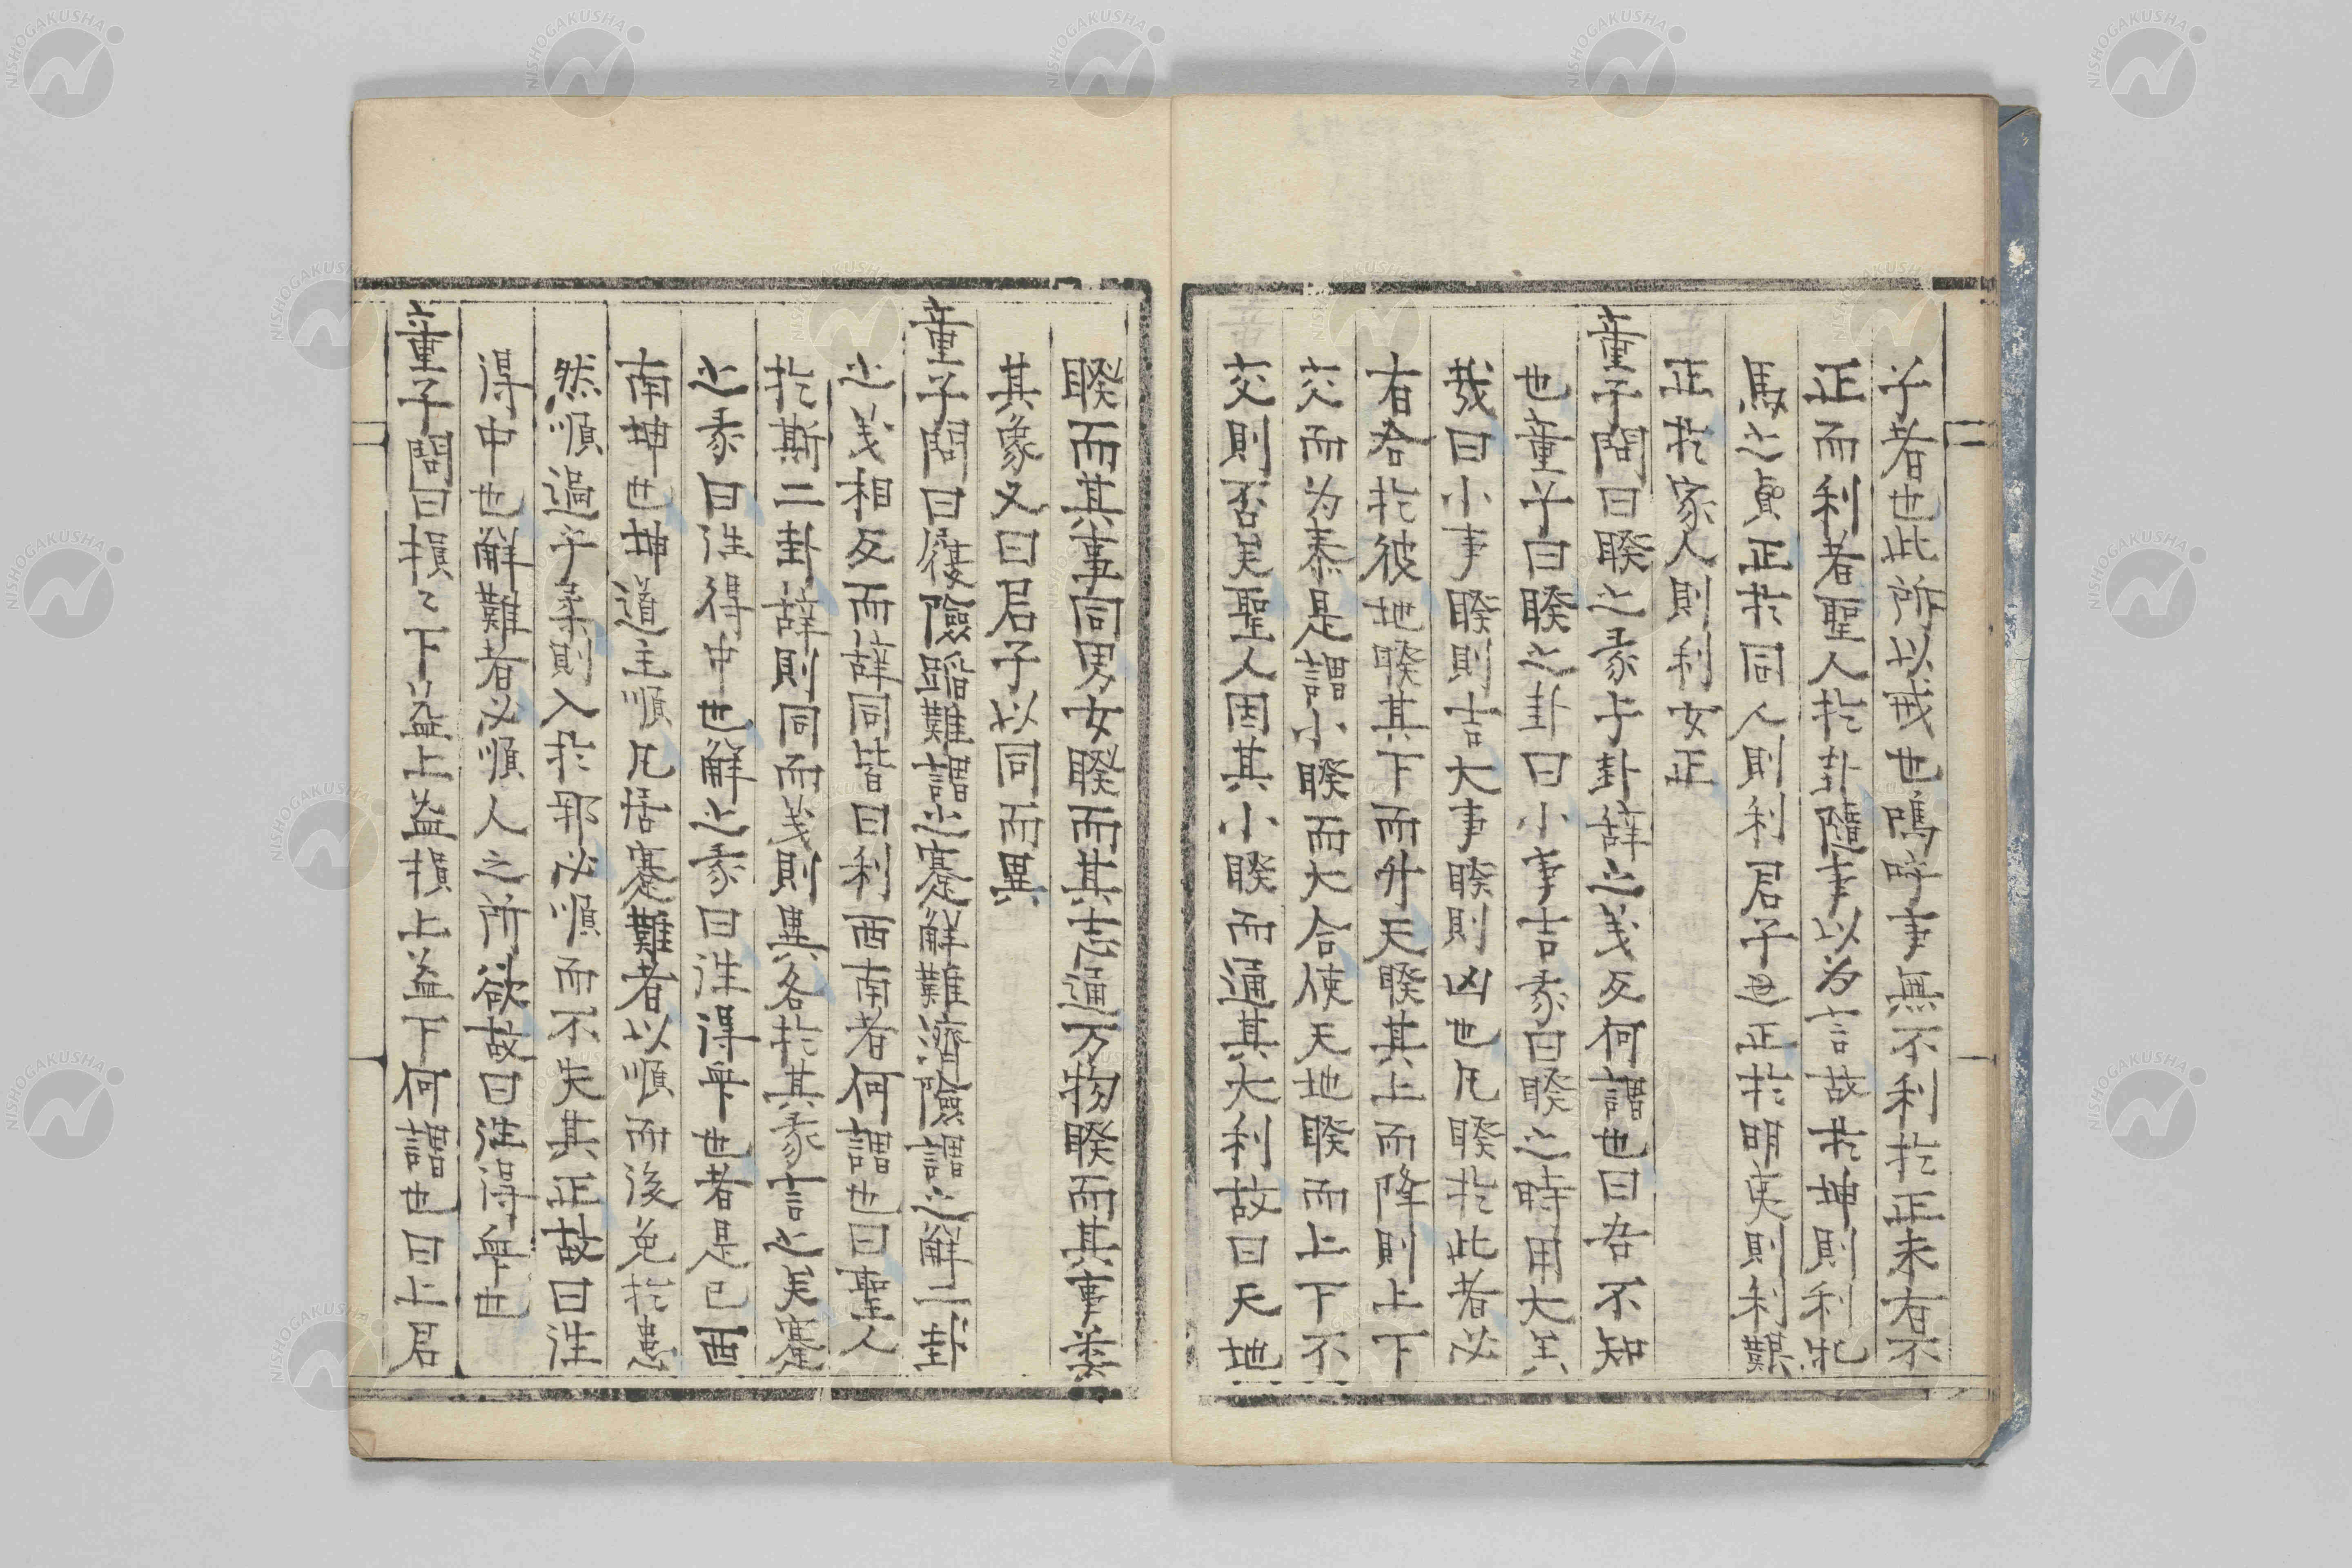 子者也此所以戒也嗚呼事無不利於正未有不
正而利者聖人於卦隨事以為言故於坤則利牝
馬之貞正於同人則利君子也正於明夷則利艱
正於家人則利女正
童子問曰睽之彖与卦辞之義反何謂也曰吾不知
也童子曰睽之卦曰小事吉彖曰睽之時用大矣
哉曰小事睽則吉大事睽則凶也凡睽於此者必
有合於彼地睽其下而升天睽其上而降則上下
交而为泰是謂小睽而大合使天地睽而上下不
交則否矣聖人因其小睽而通其大利故曰天地
睽而其事同男女睽而其志通万物睽而其事类
其象又曰君子以同而異
童子問曰履險蹈難謂之蹇解難濟險謂之解二卦
之義相反而辞同皆曰利西南者何謂也曰聖人
於斯二卦辞則同而義則異各於其彖言之矣蹇
之彖曰往得中也解之彖曰往得衆也者是已西
南坤也坤道主順凡居蹇難者以順而後免於患
然順過乎柔則入於邪必順而不失其正故曰往
得中也解難者必順人之所欲故曰往得衆也
童子問曰損〻下益上益損上益下何謂也曰上君
NISHOGAKUSHA